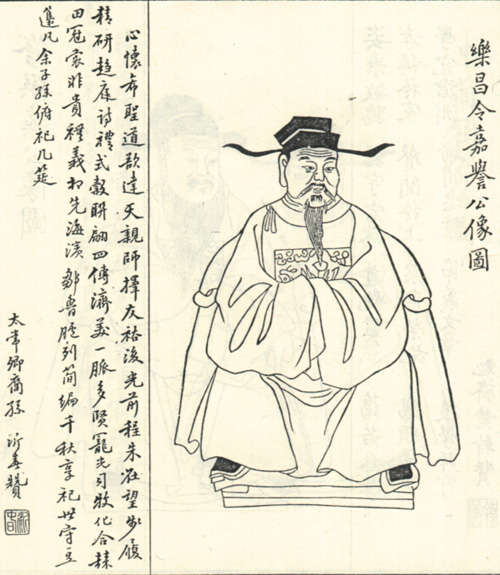 樂昌令嘉譽公像圖
心懷希聖道欵達天親師擇友裕後光前程朱在望步履
精研趨庭詩禮式穀聯翩四傳濟美一脈多賢寵光司牧化合棘
田冠裳非貴禮義為先海濱鄒魯臚列簡編千秋享祀世守豆
籩凡余子孫俯祀几筵
太常卿裔孫 贊